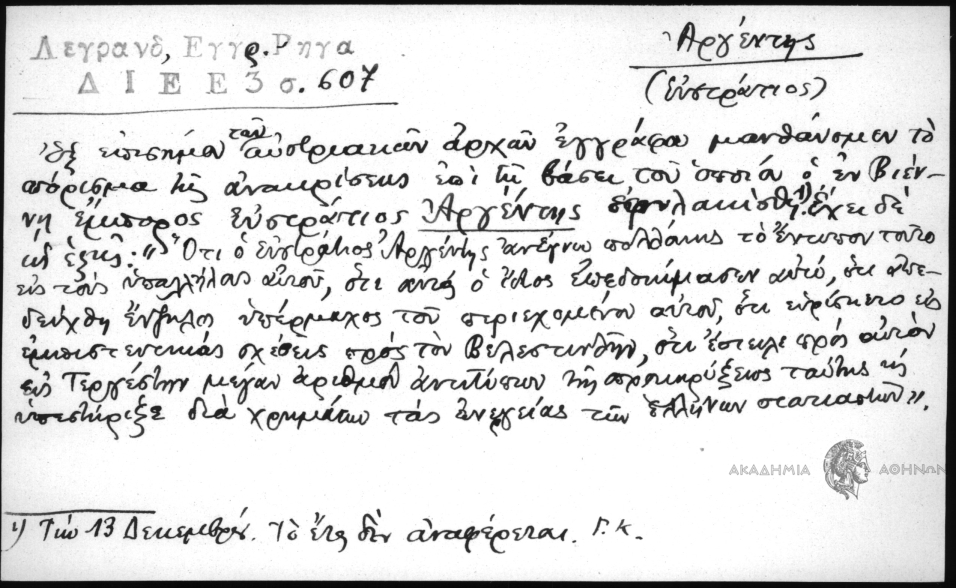 Λεγρανδ, Εγγρ. Ρηγα
Δ Ι Ε Ε 3 σ. 607
Ἀργέντης
(Εὐστράτιος)
Ἐξ ἐπισήμου τῶν αὐστριακῶν ἀρχῶν ἐγγράφου μανθάνομεν τὸ
πόρισμα τῆς ἀνακρίσεως ἐπὶ τῇ βάσει τοῦ ὁποίου ὁ ἐν Βιέν-
νῃ ἔμπορος Εὐστράτιος Ἀργέντης ἐφυλακίσθη¹⁾. Ἔχει δὲ
ὡς ἑξῆς: "Ὅτι ὁ Εὐστράτιος Ἀργέντης ἀνέγνω πολλάκις τὸ ἔντυπον τοῦτο
εἰς τοὺς ὑπαλλήλους αὐτοῦ, ὅτι αὐτὸς ὁ ἴδιος ἐπεδοκίμασεν αὐτό, ὅτι ἀπε-
δείχθη ἔνζηλος ὑπέρμαχος τοῦ περιεχομένου αὐτοῦ, ὅτι εὑρίσκετο εἰς
ἐμπιστευτικὰς σχέσεις πρὸς τὸν Βελεστινλῆν, ὅτι ἔστειλε πρὸς αὐτὸν
εἰς Τεργέστην μέγαν ἀριθμὸν ἀντιτύπων τῆς προκηρύξεως ταύτης κ̀
ὑπεστήριξε διὰ χρημάτων τὰς ἐνεργείας τῶν Ἑλλήνων στασιαστῶν".
ΑΚΑΔΗΜΙΑ ΑΘΗΝΩΝ
¹⁾ Τῇ 13 Δεκεμβρίου. Τὸ ἔτος δὲν ἀναφέρεται. Γ. Κ.